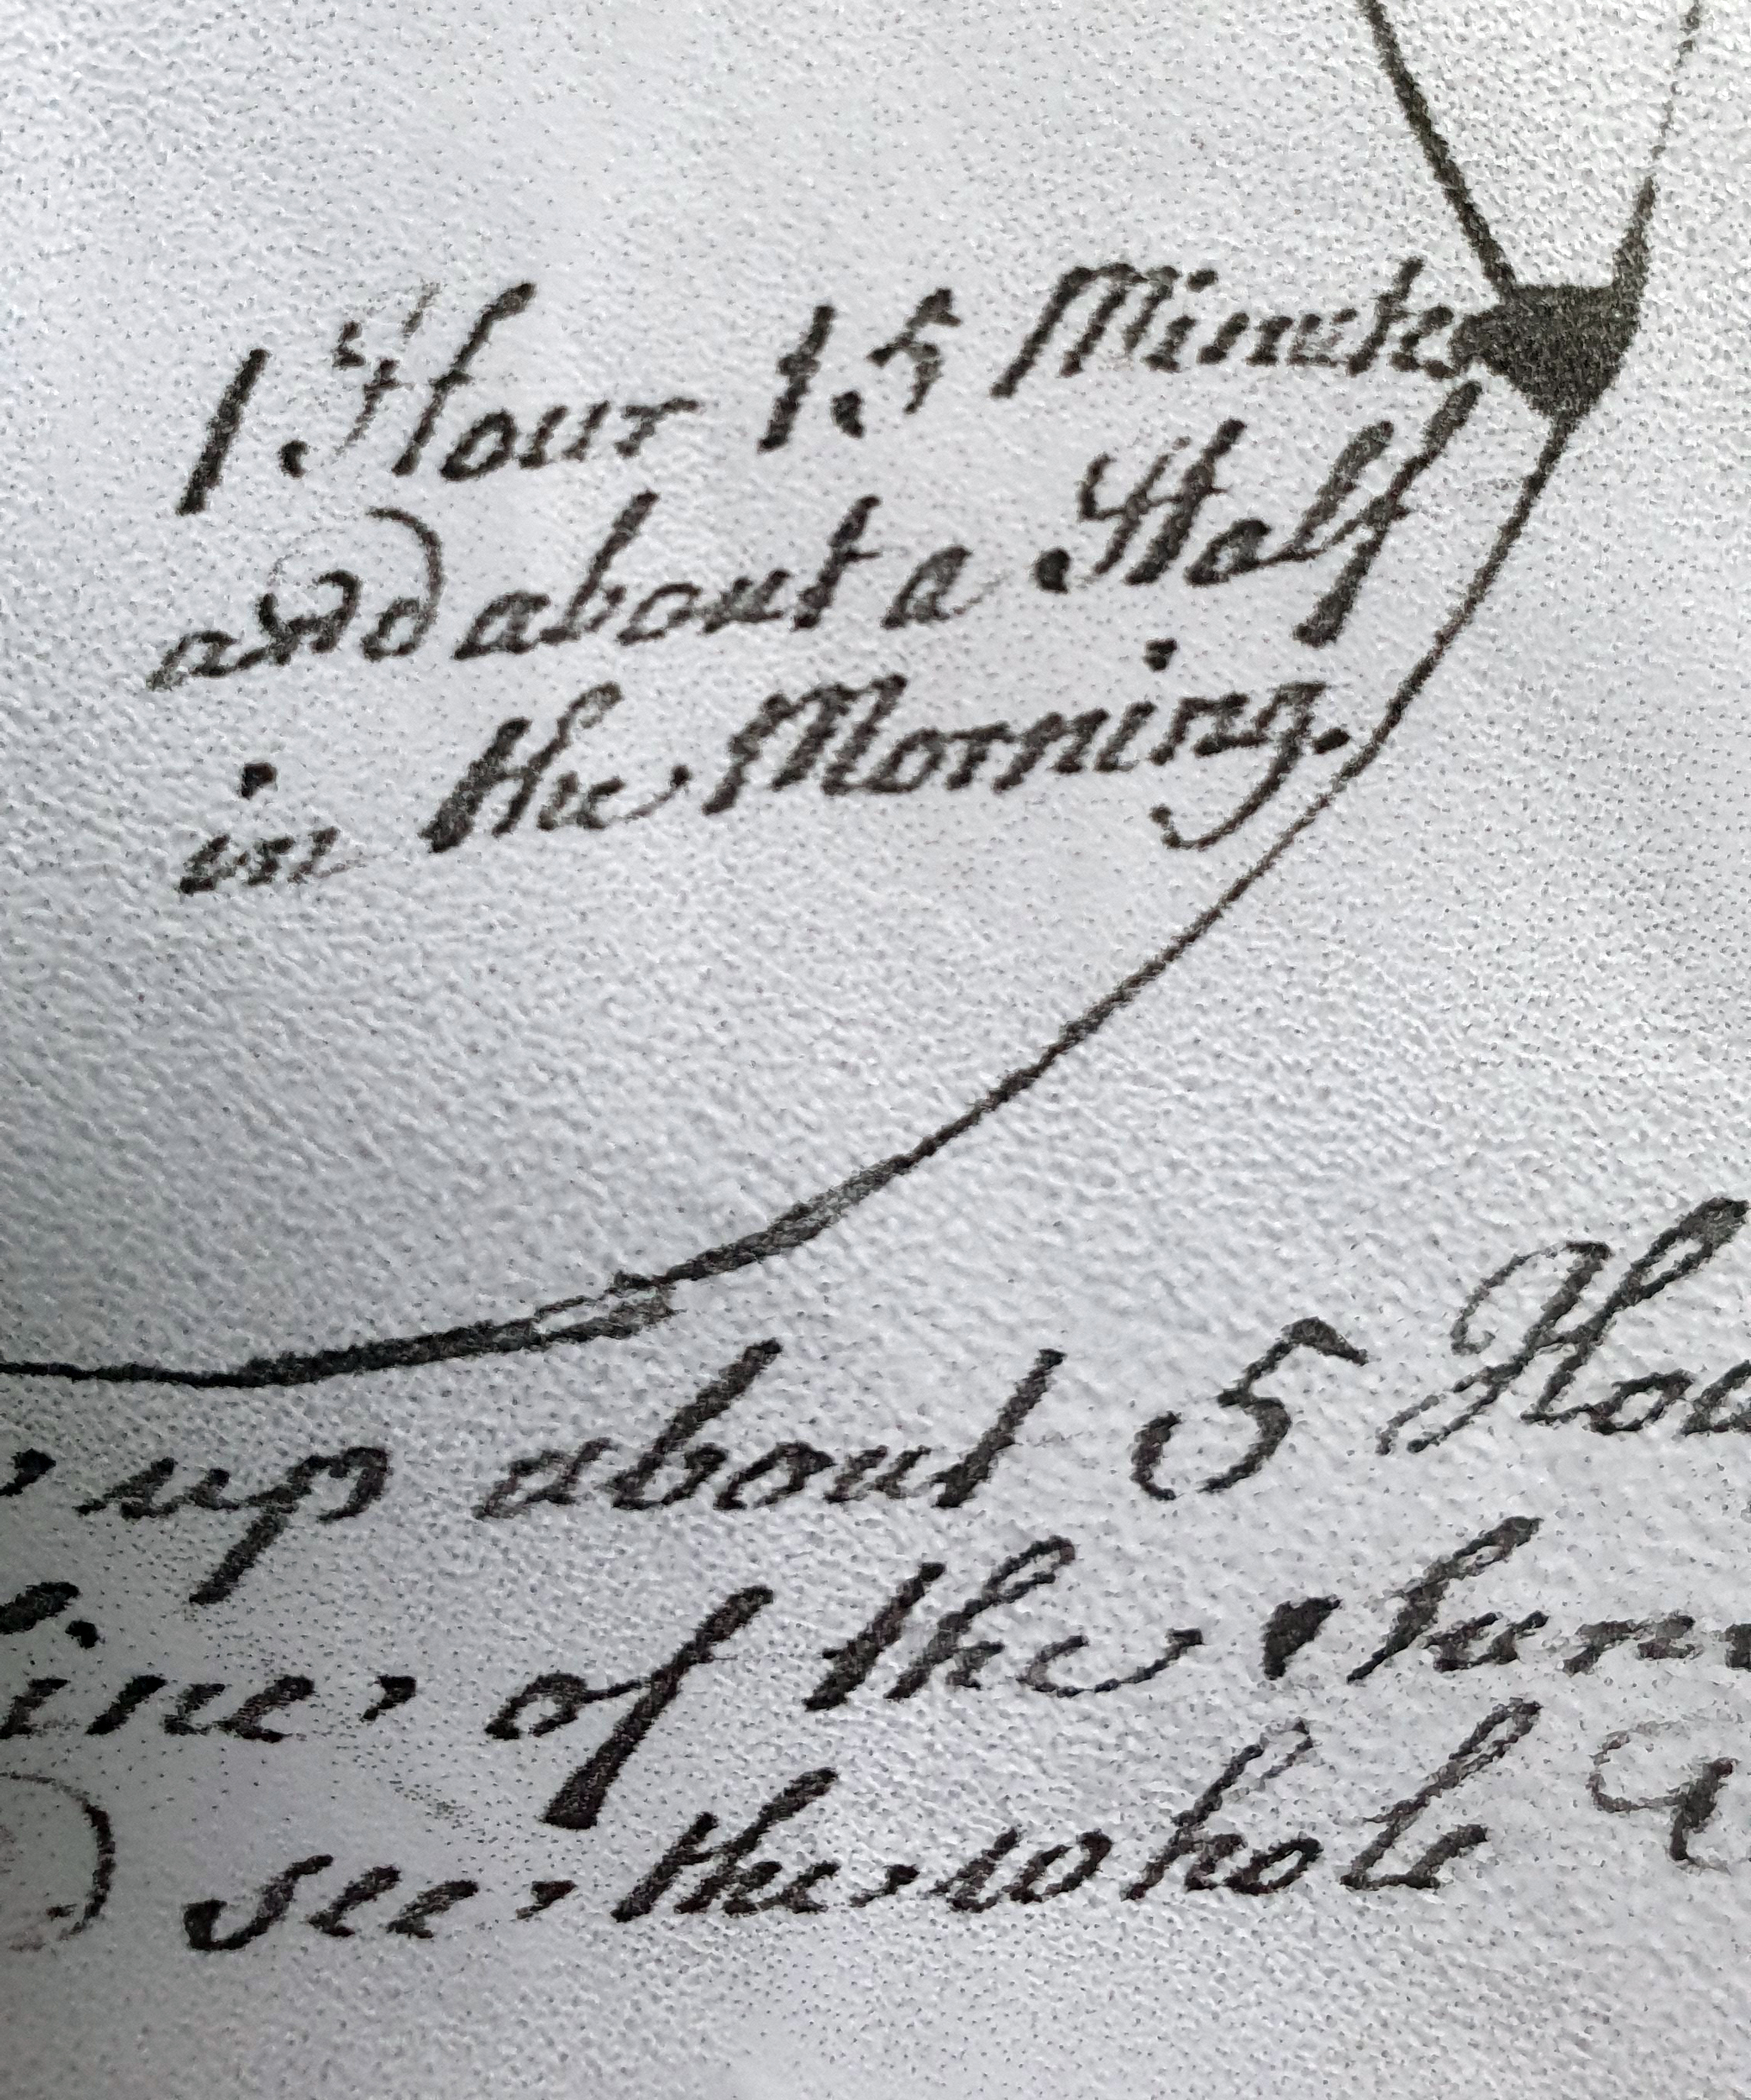 1 Hour 15 Minutes
and about a Half
in the Morning.
up about 5 Hou
ine of the
see the whole